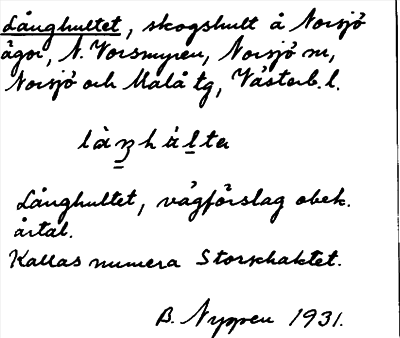 Långhultet, skogshult å Norsjö
ägor, N. Vorsmyren, Norsjö sn,
Norsjö och Malå tg, Västerb. l.
Långhultet, vägförslag obek.
årtal.
Kallas numera Storschaktet.
B. Nyppen 1931.